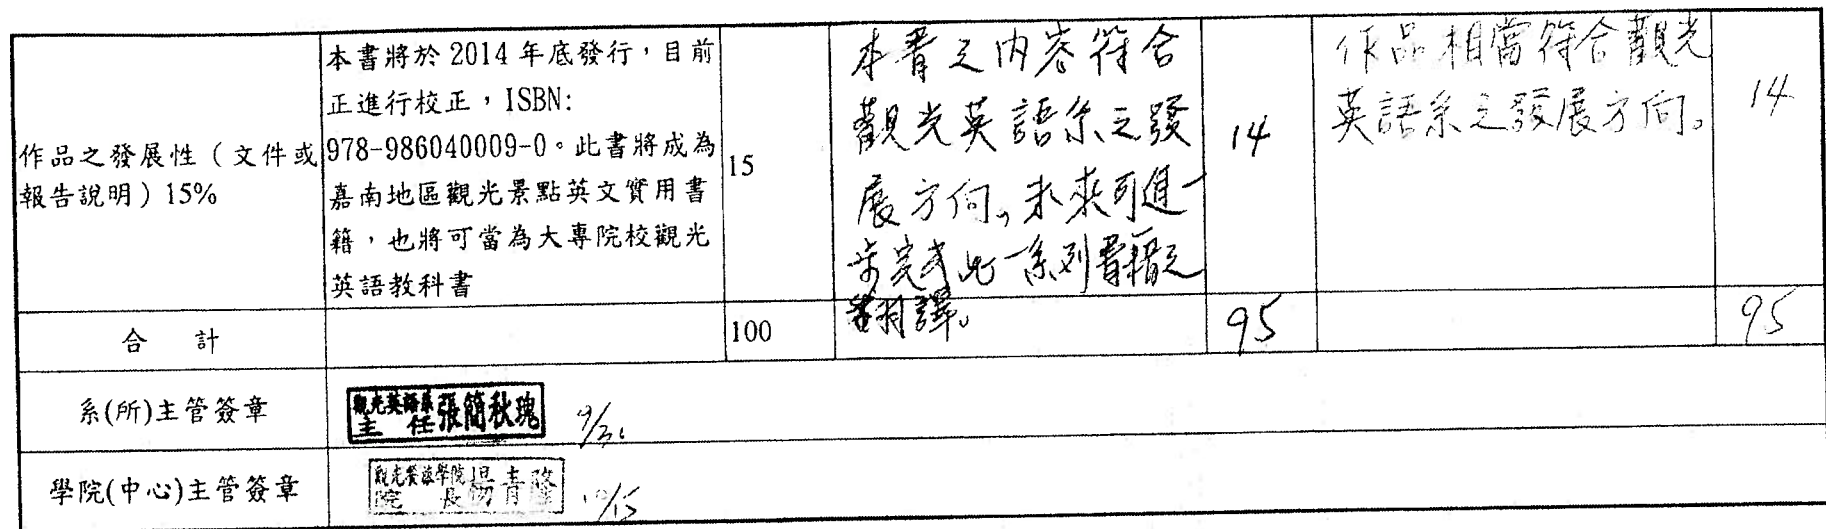 作品之發展性（文件或
報告說明）15%
本書將於 2014 年底發行，目前
正進行校正，ISBN:
978-986040009-0。此書將成為
嘉南地區觀光景點英文實用書
籍，也將可當為大專院校觀光
英語教科書
15
本書之內容符合
觀光英語系之發
展方向。未來可進一
步完成此一系列書籍之
翻譯。
14
作品相當符合觀光
英語系之發展方向。
14
合 計
100
95
95
系(所)主管簽章
觀光英語系
主 任 張簡秋瑰
學院(中心)主管簽章
觀光餐旅學院
院 長 楊青隆
10/15